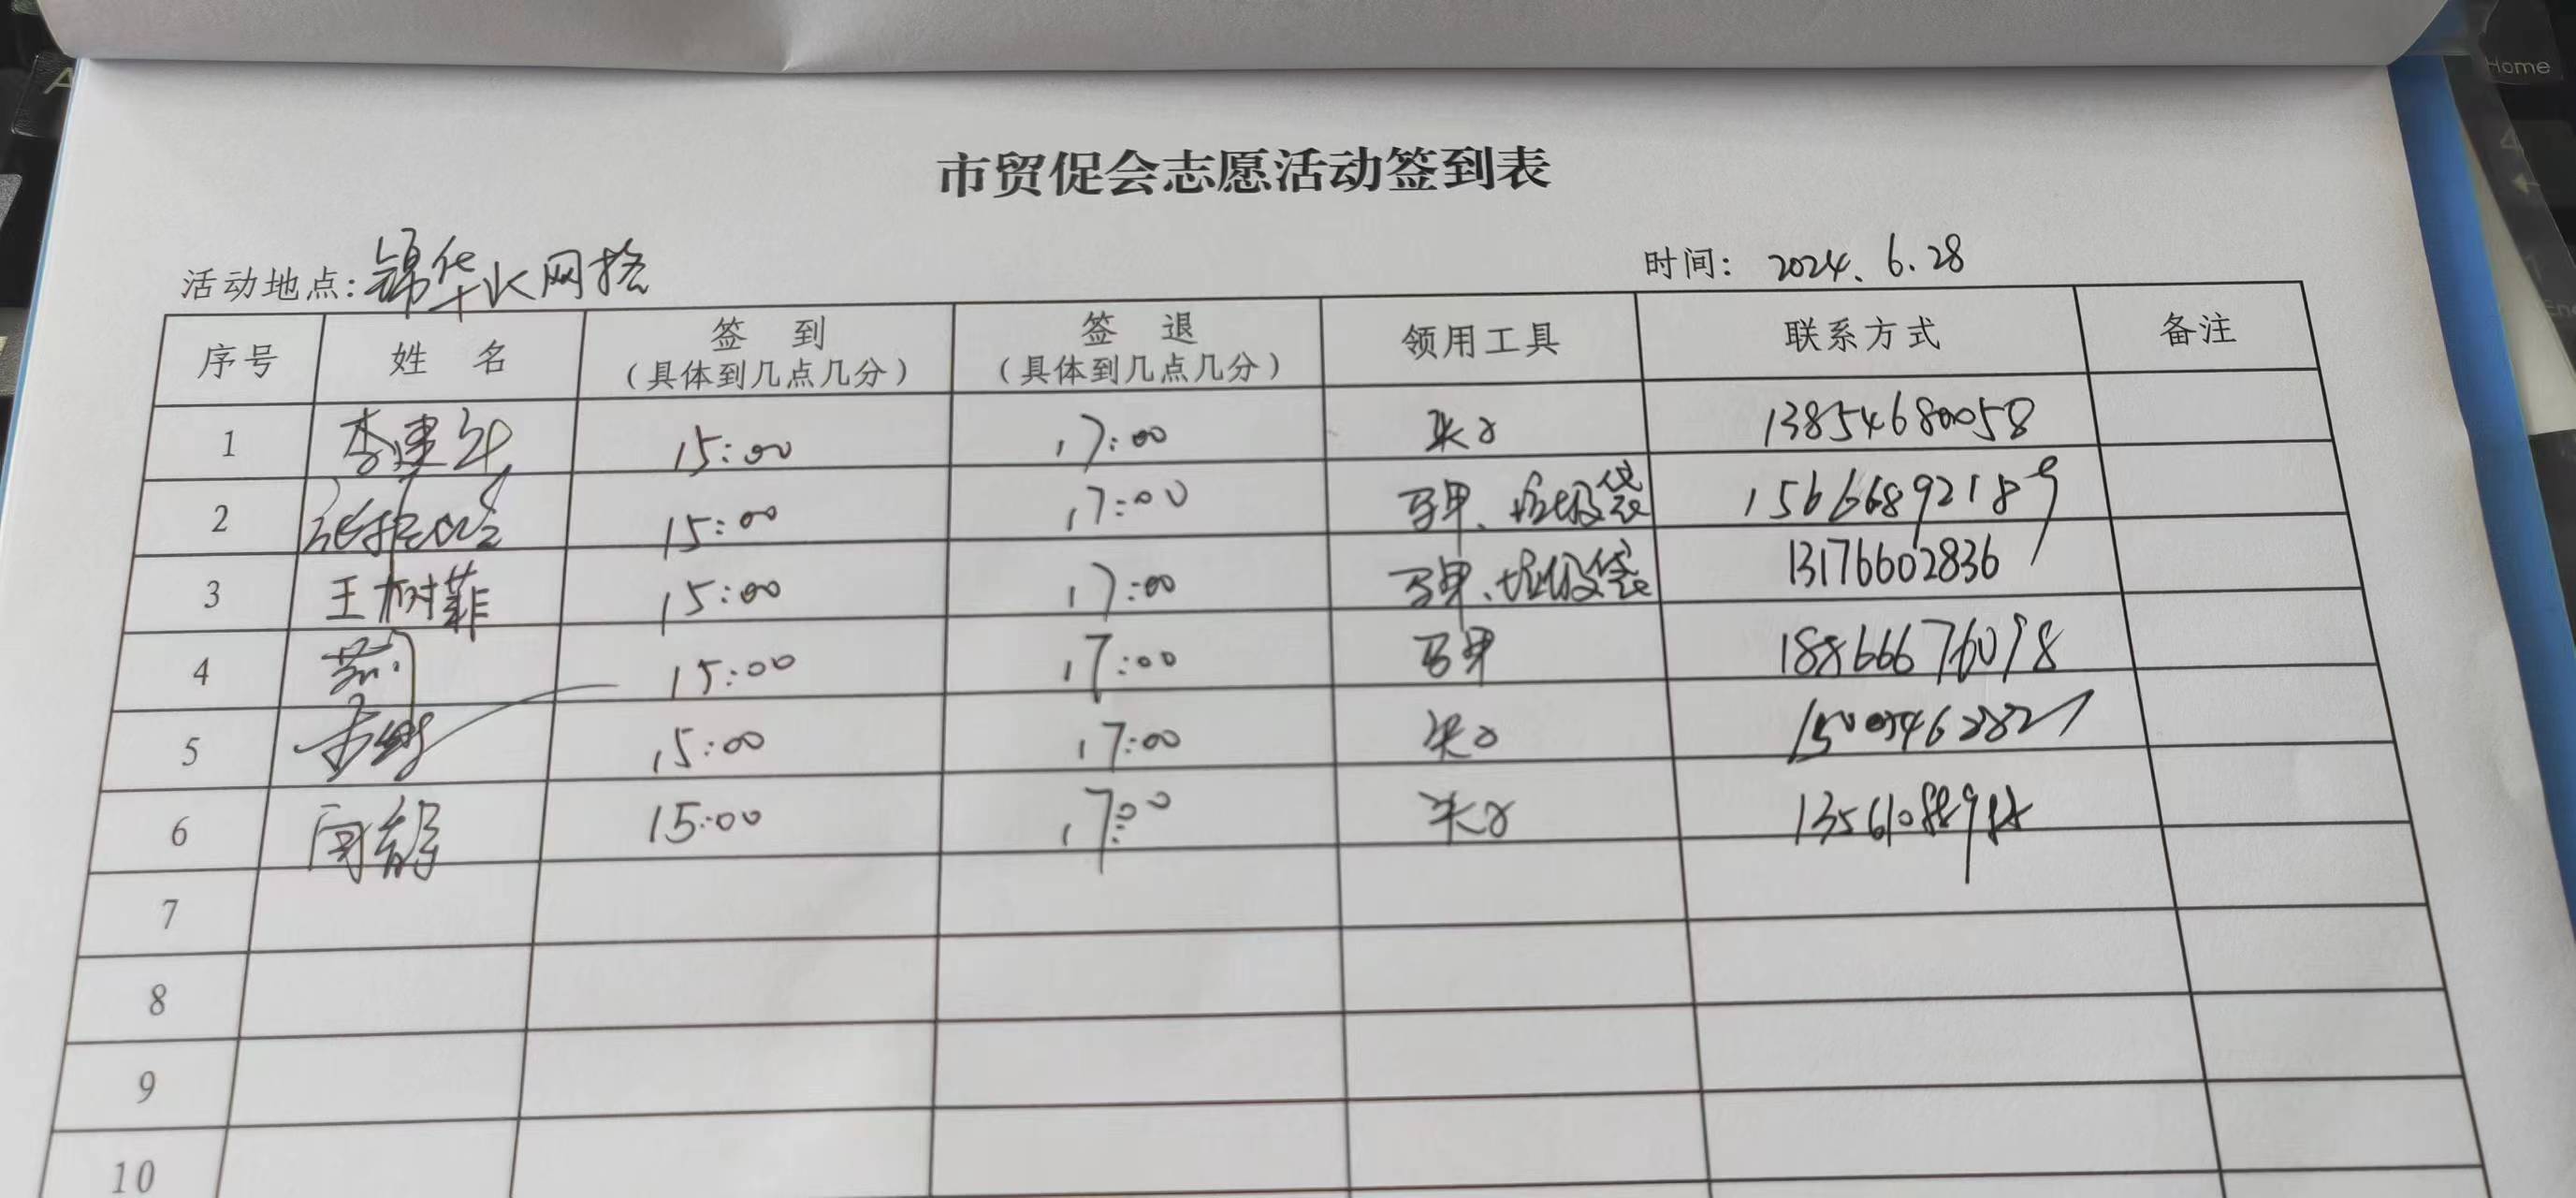 市贸促会志愿活动签到表
活动地点: 锦华水网格 时间: 2024.6.28
序号 姓名 签到 (具体到几点几分) 签退 (具体到几点几分) 领用工具 联系方式 备注
1 李建 15:00 17:00 夹子 13854680058
2 张 15:00 17:00 马甲、垃圾袋 15666892189
3 王树菲 15:00 17:00 马甲、垃圾袋 13176602836
4 15:00 17:00 马甲 18866676098
5 15:00 17:00 夹子
6 15:00 17:00 夹子
7
8
9
10
Home